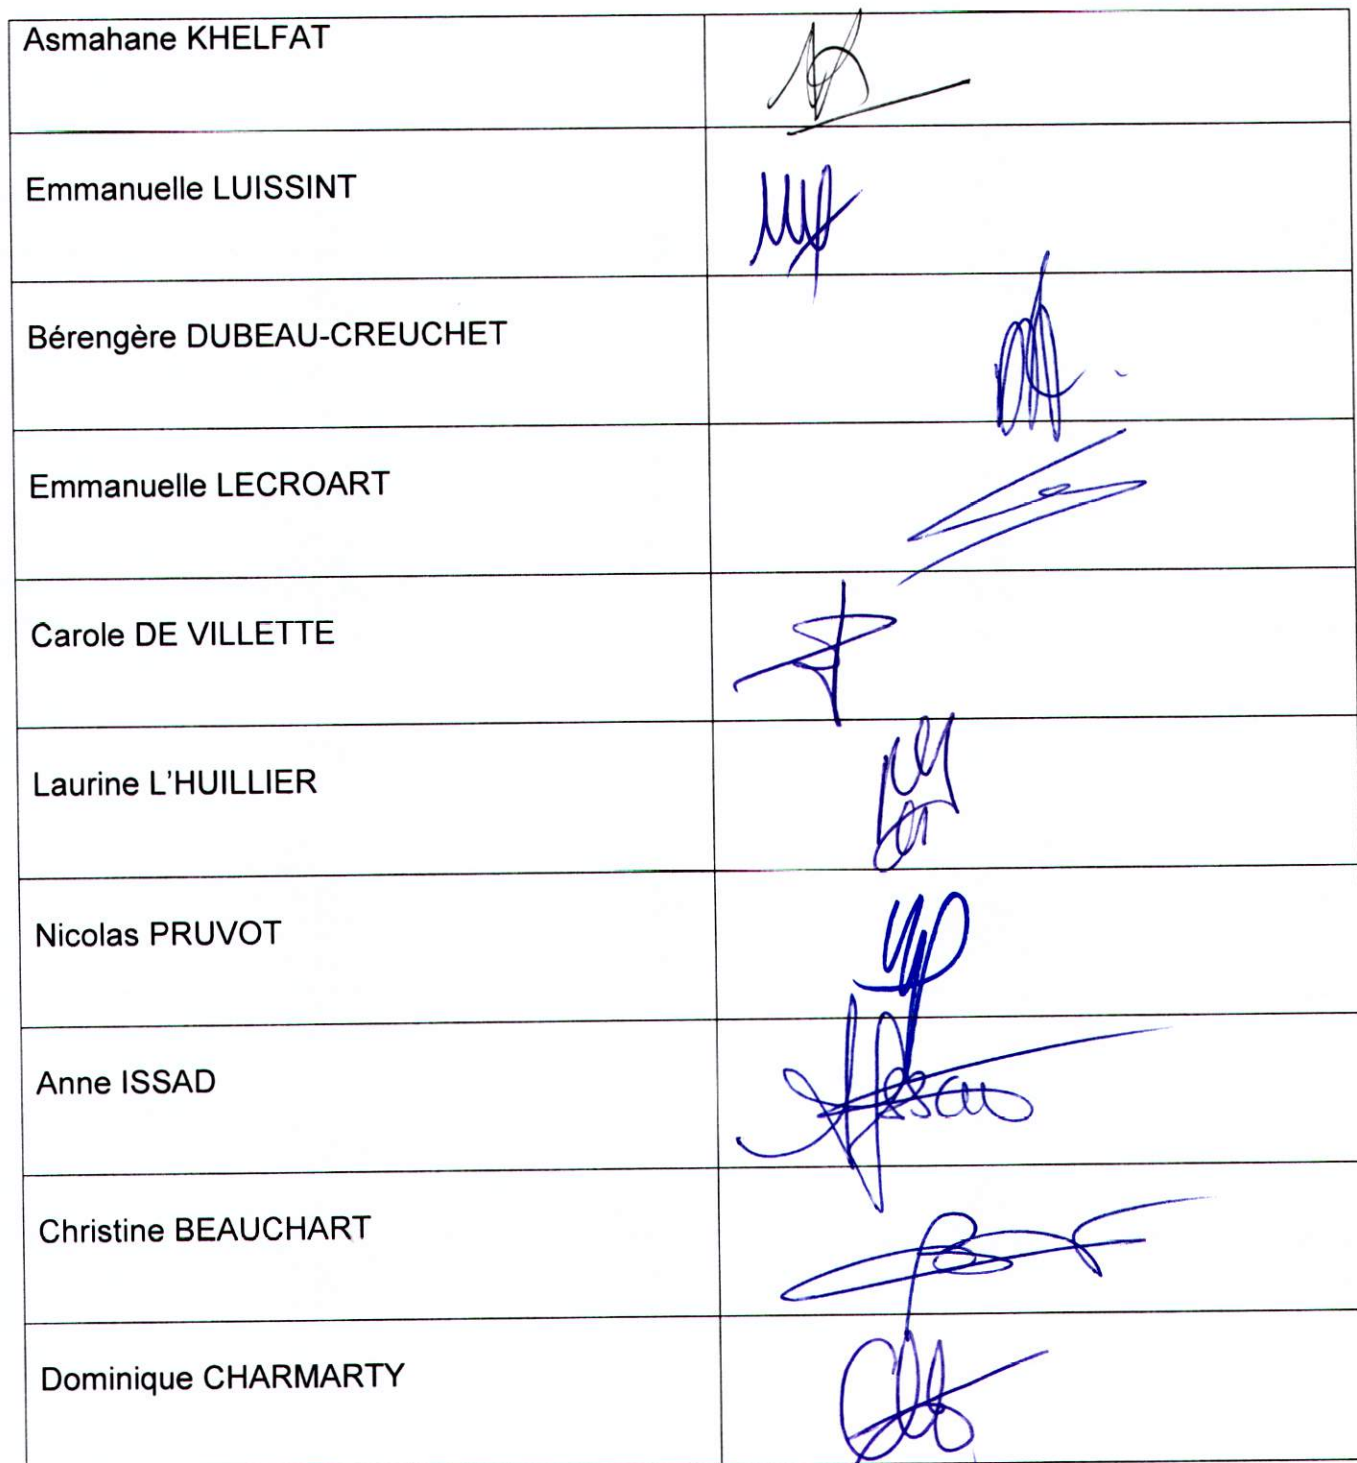 Asmahane KHELFAT
Emmanuelle LUISSINT
Bérengère DUBEAU-CREUCHET
Emmanuelle LECROART
Carole DE VILLETTE
Laurine L'HUILLIER
Nicolas PRUVOT
Anne ISSAD
Christine BEAUCHART
Dominique CHARMARTY